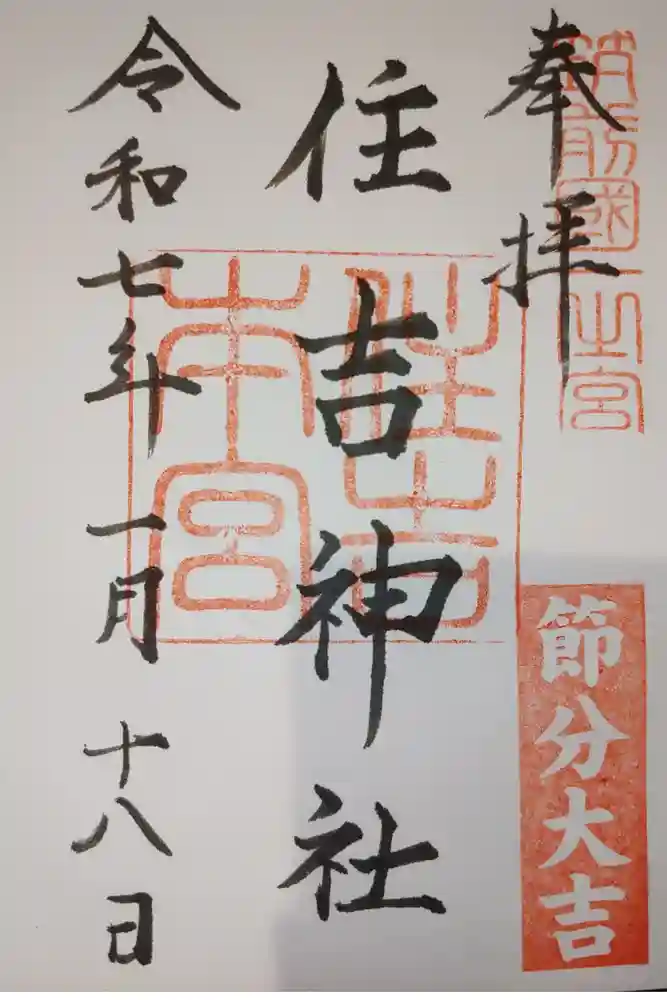 奉拝
筑前國一之宮
住吉神社
住吉本宮
令和七年一月十八日
節分大吉